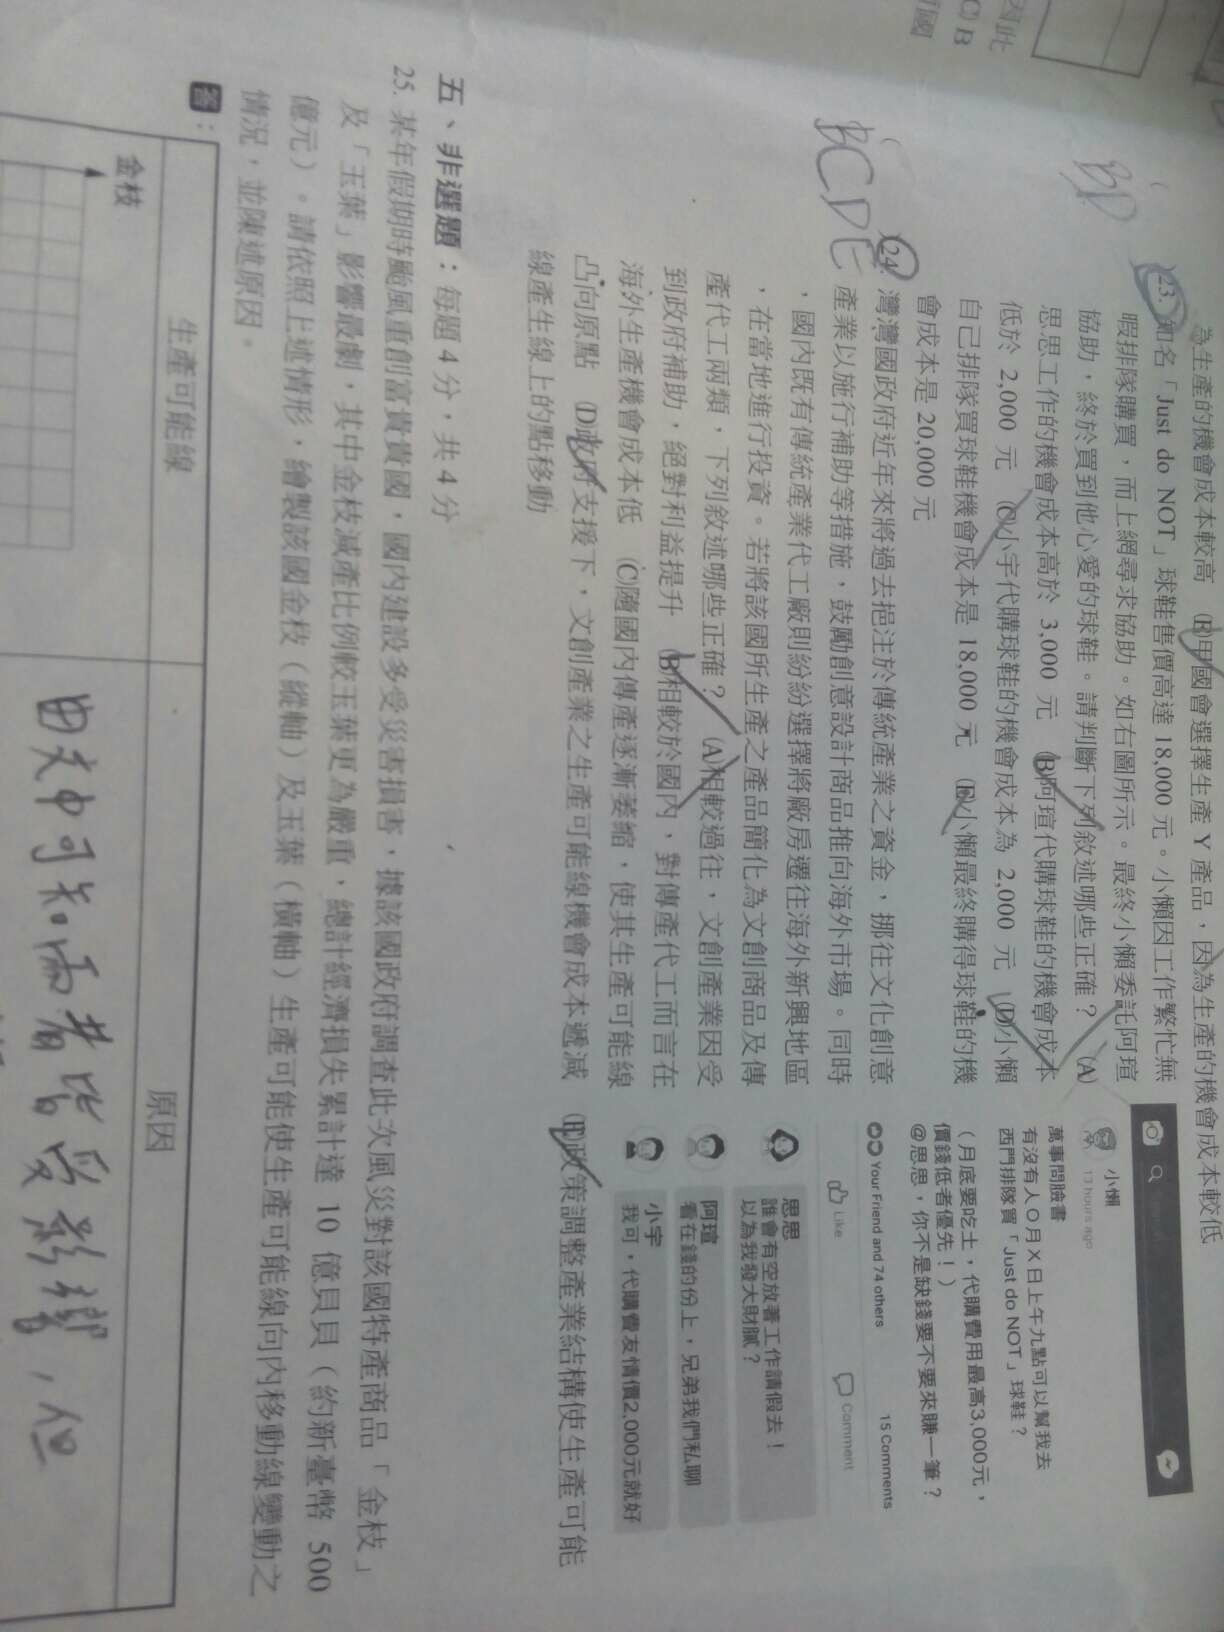 為生產的機會成本較高 (E)甲國會選擇生產 Y 產品，因為生產的機會成本較低
BD
23. 知名「Just do NOT」球鞋售價高達 18,000 元。小懶因工作繁忙無
暇排隊購買，而上網尋求協助。如右圖所示。最終小懶委託阿瑄
協助，終於買到他心愛的球鞋。請判斷下列敘述哪些正確？ (A)
思思工作的機會成本高於 3,000 元 (B)阿瑄代購球鞋的機會成本
低於 2,000 元 (C)小宇代購球鞋的機會成本為 2,000 元 (D)小懶
自己排隊買球鞋機會成本是 18,000 元 (E)小懶最終購得球鞋的機
會成本是 20,000 元
小懶
13 hours ago
萬事問臉書
有沒有人○月X日上午九點可以幫我去
西門排隊買「Just do NOT」球鞋？
（月底要吃土，代購費用最高3,000元，
價錢低者優先！）
@思思，你不是缺錢要不要來賺一筆？
Your Friend and 74 others
15 Comments
Like
Comment
思思
誰會有空放著工作請假去！
以為我發大財膩？
阿瑄
看在錢的份上，兄弟我們私聊
小宇
我可，代購費友情價2,000元就好
BCDE
24. 灣灣國政府近年來將過去挹注於傳統產業之資金，挪往文化創意
產業以施行補助等措施，鼓勵創意設計商品推向海外市場。同時
，國內既有傳統產業代工廠則紛紛選擇將廠房遷往海外新興地區
，在當地進行投資。若將該國所生產之產品簡化為文創商品及傳
產代工兩類，下列敘述哪些正確？ (A)相較過往，文創產業因受
到政府補助，絕對利益提升 (B)相較於國內，對傳產代工而言在
海外生產機會成本低 (C)隨國內傳產逐漸萎縮，使其生產可能線
凸向原點 (D)政府支援下，文創產業之生產可能線機會成本遞減 (E)政策調整產業結構使生產可能
線產生線上的點移動
五、非選題：每題 4 分，共 4 分
25. 某年假期時颱風重創富貴貴國，國內建設多受災害損害，據該國政府調查此次風災對該國特產商品「金枝」
及「玉葉」影響最劇，其中金枝減產比例較玉葉更為嚴重，總計經濟損失累計達 10 億貝貝（約新臺幣 500
億元）。請依照上述情形，繪製該國金枝（縱軸）及玉葉（橫軸）生產可能使生產可能線向內移動線變動之
情況，並陳述原因。
答：
生產可能線
原因
金枝
由文中可知兩者皆受影響，但